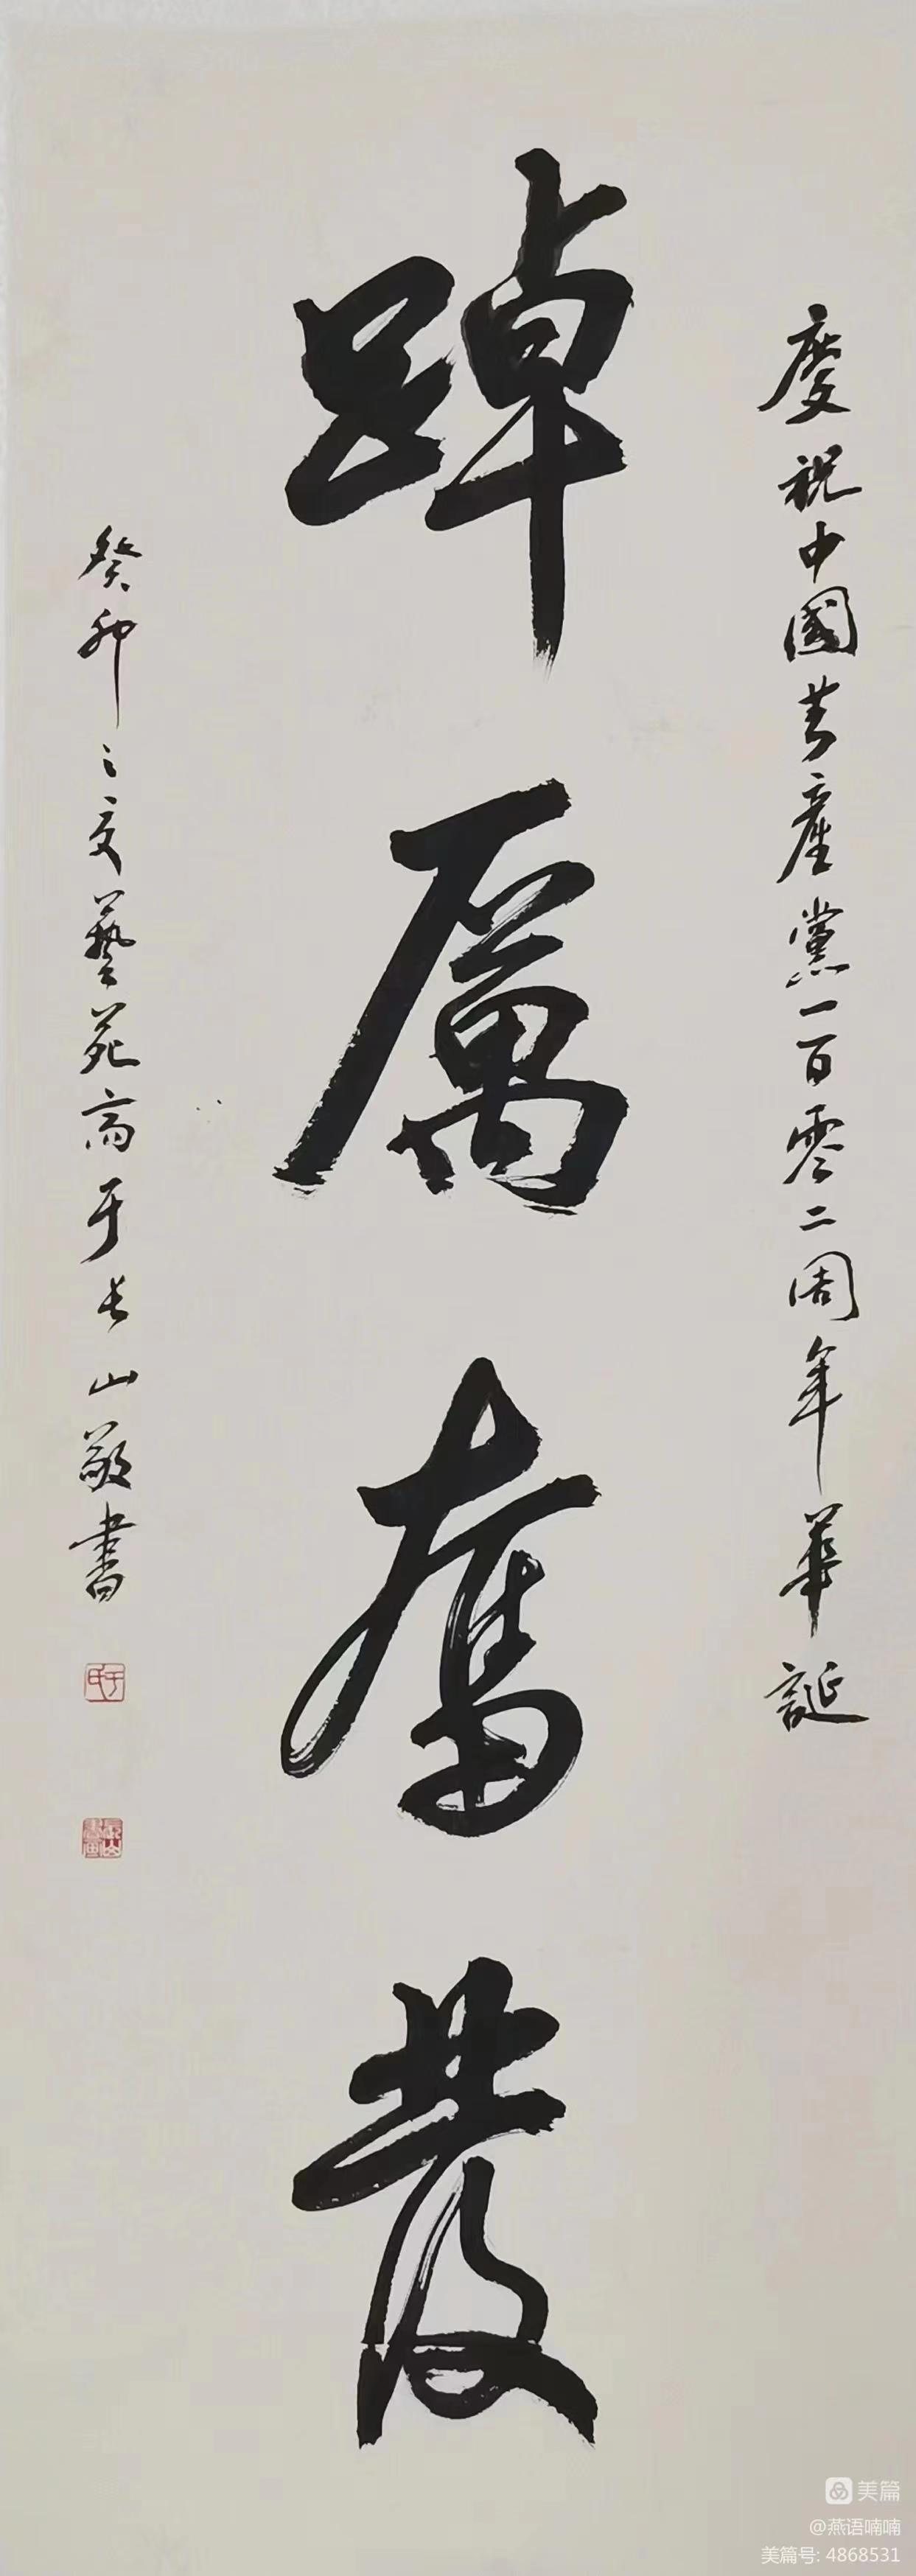 慶祝中國共產黨一百零二周年華誕
踔厲奮發
癸卯之夏藝苑高于長山敬書
美篇
@燕语喃喃
美篇号: 4868531